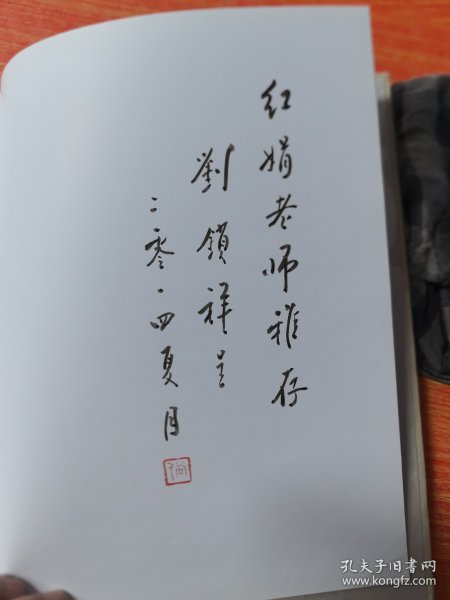 红娟老师雅存
劉鎖祥呈
二零一四夏月
孔夫子旧书网
www.kongfz.com